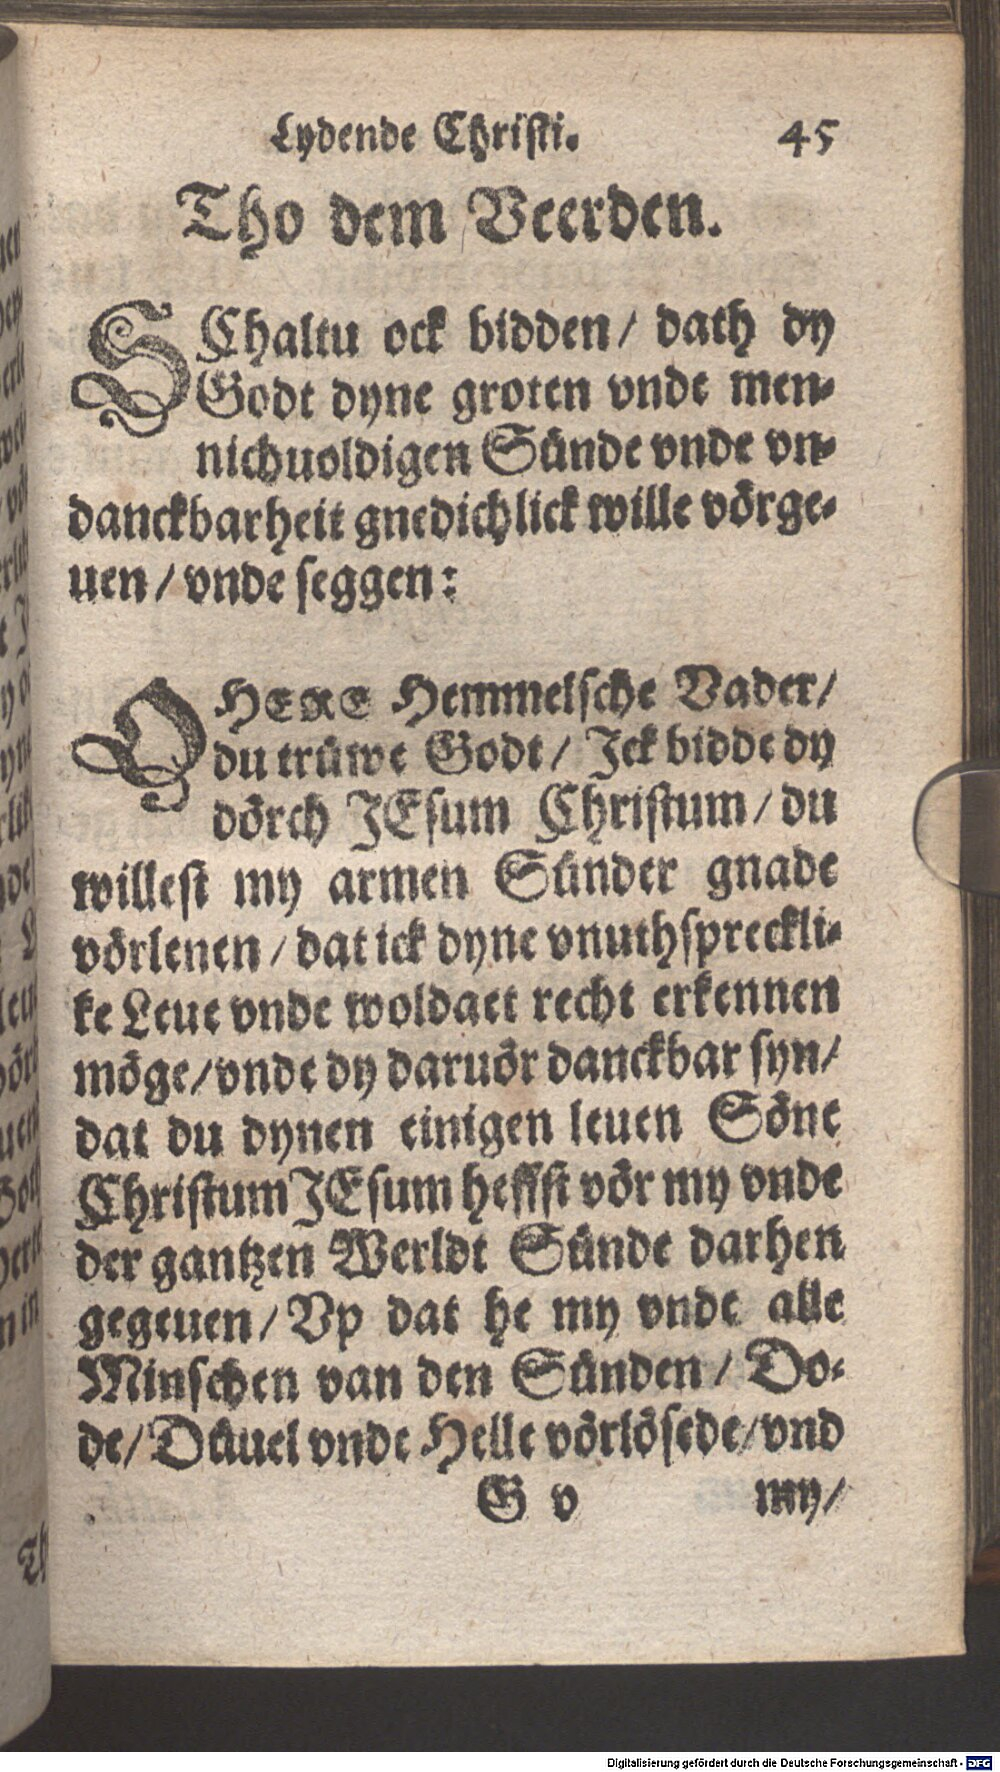 Lydende Christi. 45
Tho dem Veerden.
SChaltu ock bidden / dath dy
Godt dyne groten vnde men-
nichuoldigen Sünde vnde vn-
danckbarheit gnedichlick wille vörge-
uen / vnde seggen:
O HERE Hemmelsche Vader /
du trüwe Godt / Ick bidde dy
dörch JEsum Christum / du
willest my armen Sünder gnade
vörlenen / dat ick dyne vnuthspreckli-
ke Leue vnde woldaet recht erkennen
möge / vnde dy daruör danckbar syn /
dat du dynen einigen leuen Söne
Christum JEsum heffst vör my vnde
der gantzen Werldt Sünde darhen
gegeuen / Vp dat he my vnde alle
Minschen van den Sünden / Do-
de / Düuel vnde Helle vörlösede / vnd
G v my /
Digitalisierung gefördert durch die Deutsche Forschungsgemeinschaft - DFG